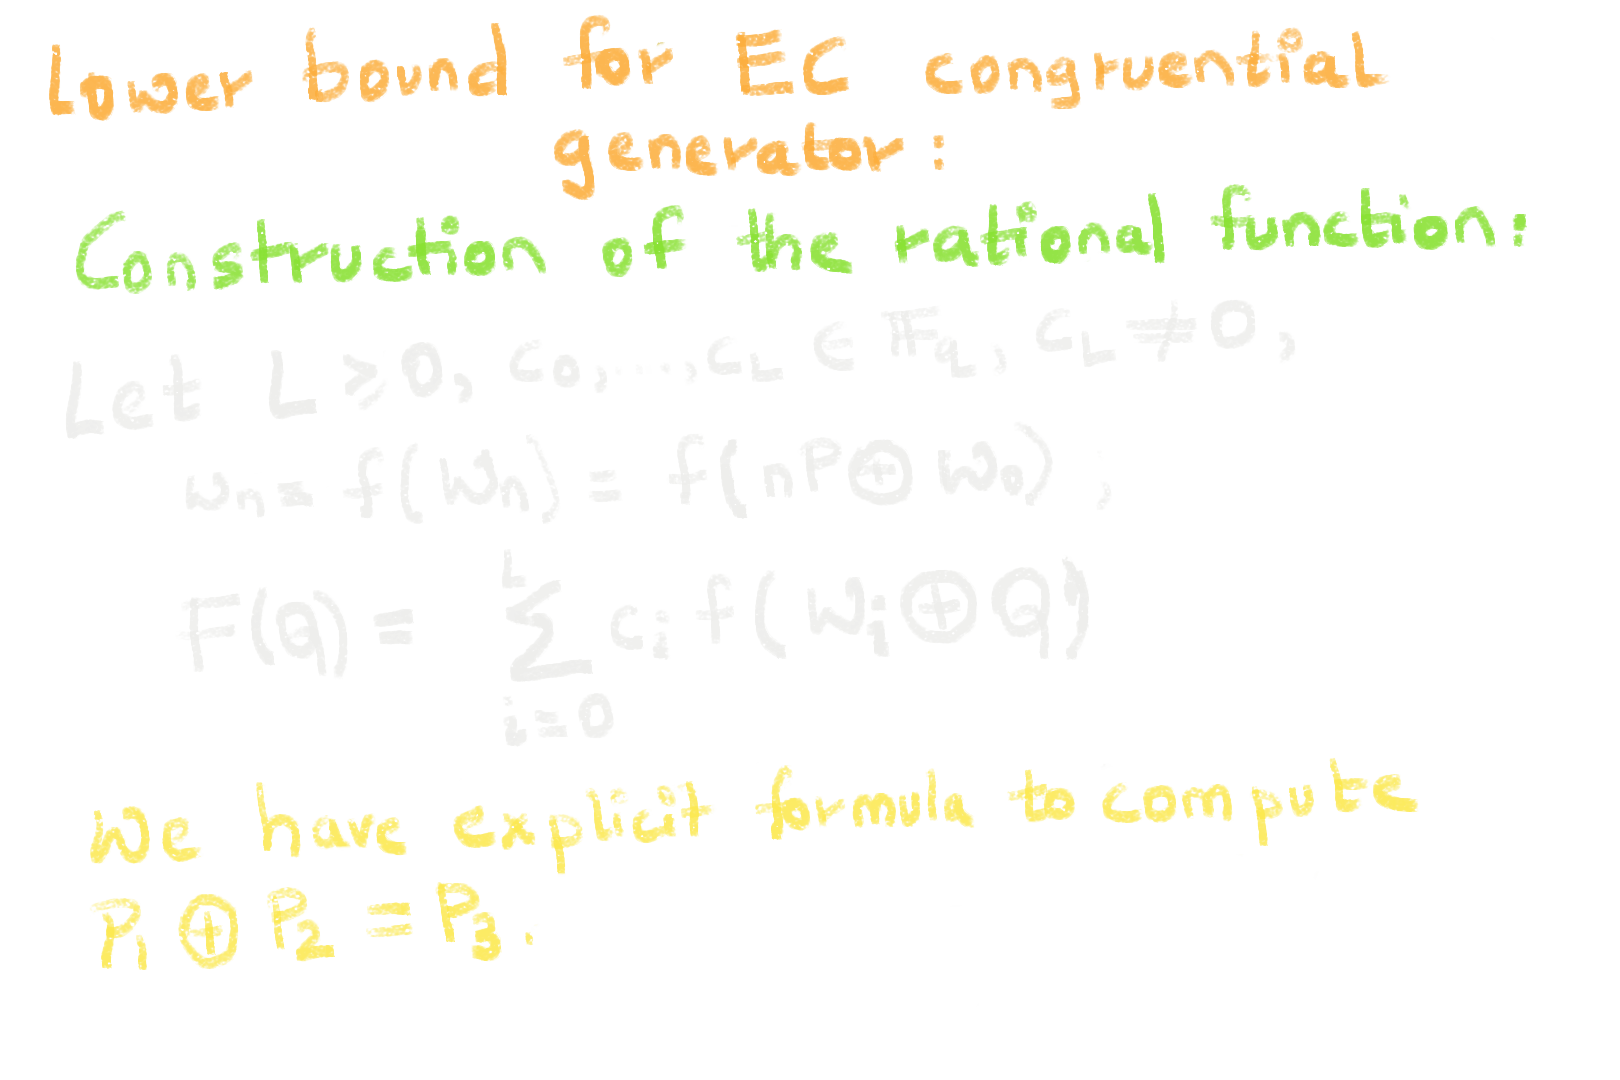 Lower bound for EC congruential
generator:
Construction of the rational function:
Let L ⩾ 0, c₀, ..., c_L ∈ 𝔽_q, c_L ≠ 0,
w_n = f(W_n) = f(nP ⊕ W₀),
F(Q) = ∑_{i=0}^{L} c_i f(W_i ⊕ Q)
We have explicit formula to compute
P₁ ⊕ P₂ = P₃.